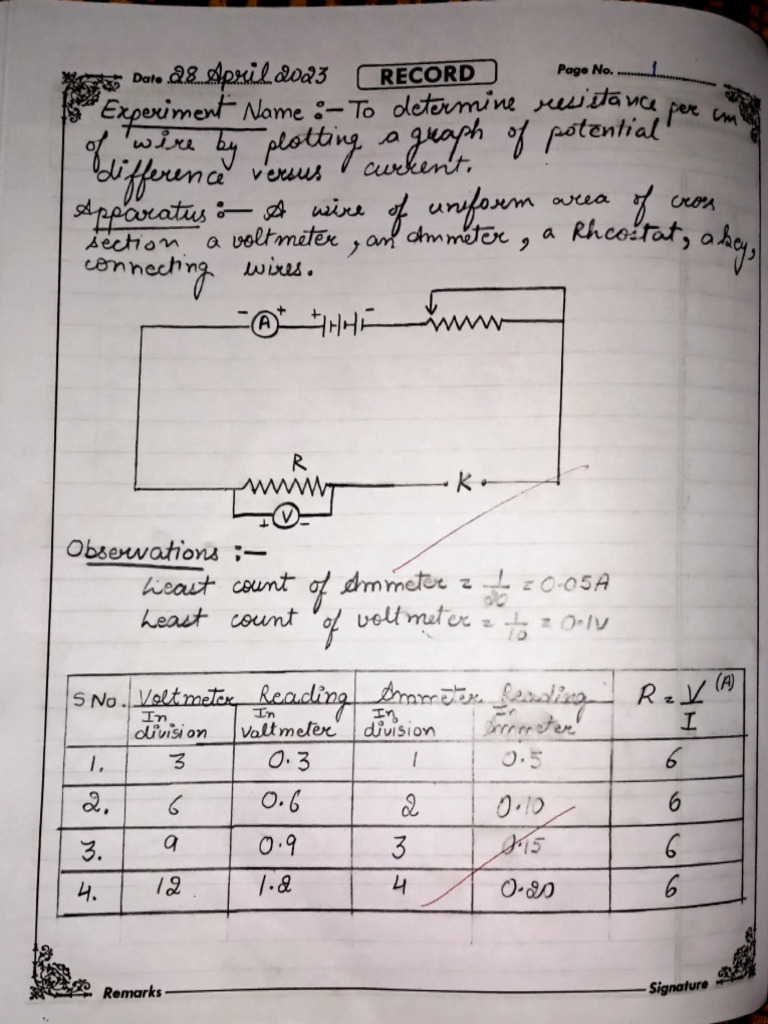 Date 28 April 2023 RECORD Page No. 1
Experiment Name :- To determine resistance per cm
of wire by plotting a graph of potential
difference versus current.
Apparatus :- A wire of uniform area of cross
section a voltmeter, an Ammeter, a Rheostat, a key,
connecting wires.
- A + + -
R
K
+ V -
Observations :-
Least count of Ammeter = 1/20 = 0.05A
Least count of voltmeter = 1/10 = 0.1V
S No. Voltmeter Reading Ammeter Reading R = V/I (A)
In division In Valtmeter In division In Ammeter
1. 3 0.3 1 0.5 6
2. 6 0.6 2 0.10 6
3. 9 0.9 3 0.15 6
4. 12 1.2 4 0.20 6
Remarks Signature